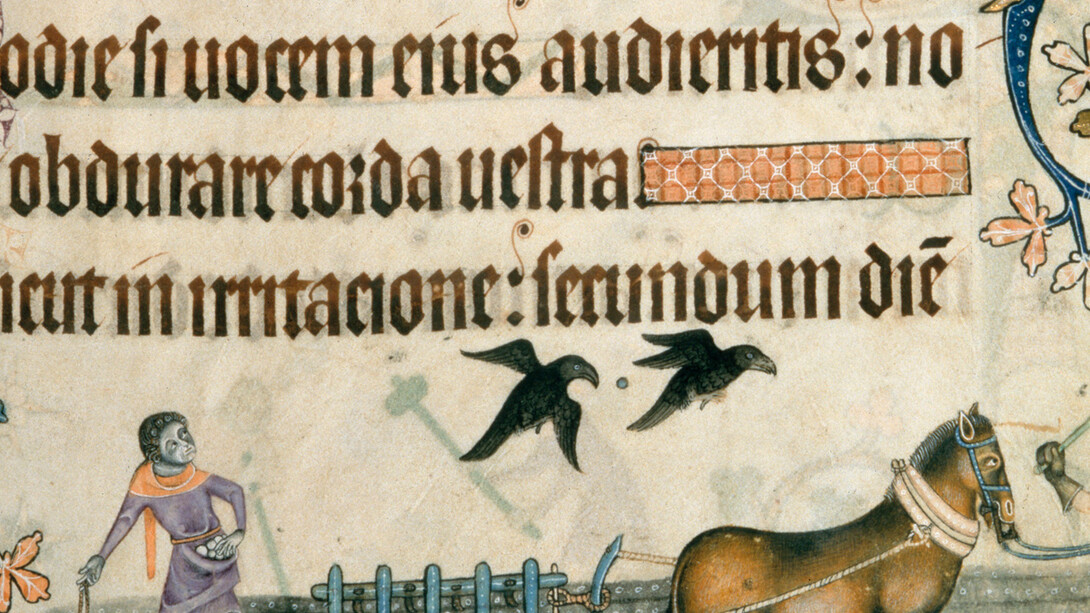 odie si uocem eius audieritis: no
obdurare corda uestra.
icut in irritacione: secundum diē